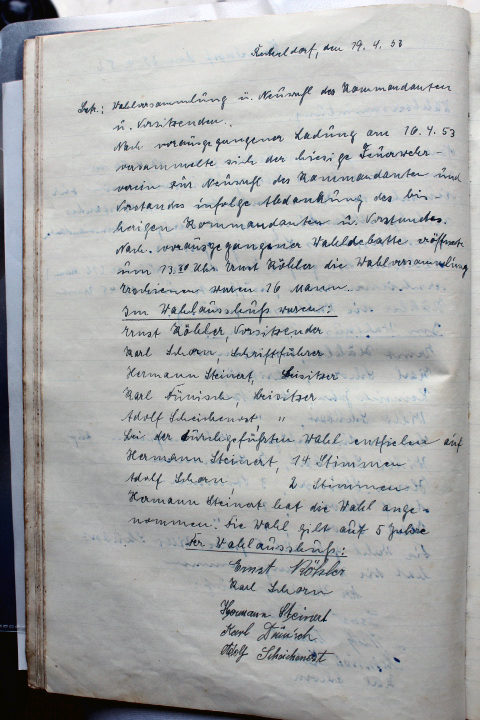 den 19. 4. 53
Betr.: Wahlversammlung u. Neuwahl des Kommandanten
u. Vorsitzenden.
Nach vorausgegangener Ladung am 16.4.53
versammelte sich der hiesige Feuerwehr-
verein zur Neuwahl des Kommandanten und
Vorstandes infolge Abdankung des bis-
herigen Kommandanten u. Vorstandes.
Nach vorausgegangener Wahldebatte eröffnete
um 13.30 Uhr Ernst Köhler die Wahlversammlung
Erschienen waren 16 Mann.
Im Wahlausschuß waren:
Ernst Köhler, Vorsitzender
Karl Schorn, Schriftführer
Hermann Steinert, Beisitzer
Karl Beisitzer
Adolf Scheichenost, "
Bei der durchgeführten Wahl entfielen auf
Hermann Steinert, 14 Stimmen
Adolf Schorn, 2 Stimmen
Hermann Steinert hat die Wahl ange-
nommen. Die Wahl gilt auf 5 Jahre
Der Wahlausschuß:
Ernst Köhler
Karl Schorn
Hermann Steinert
Karl
Adolf Scheichenost